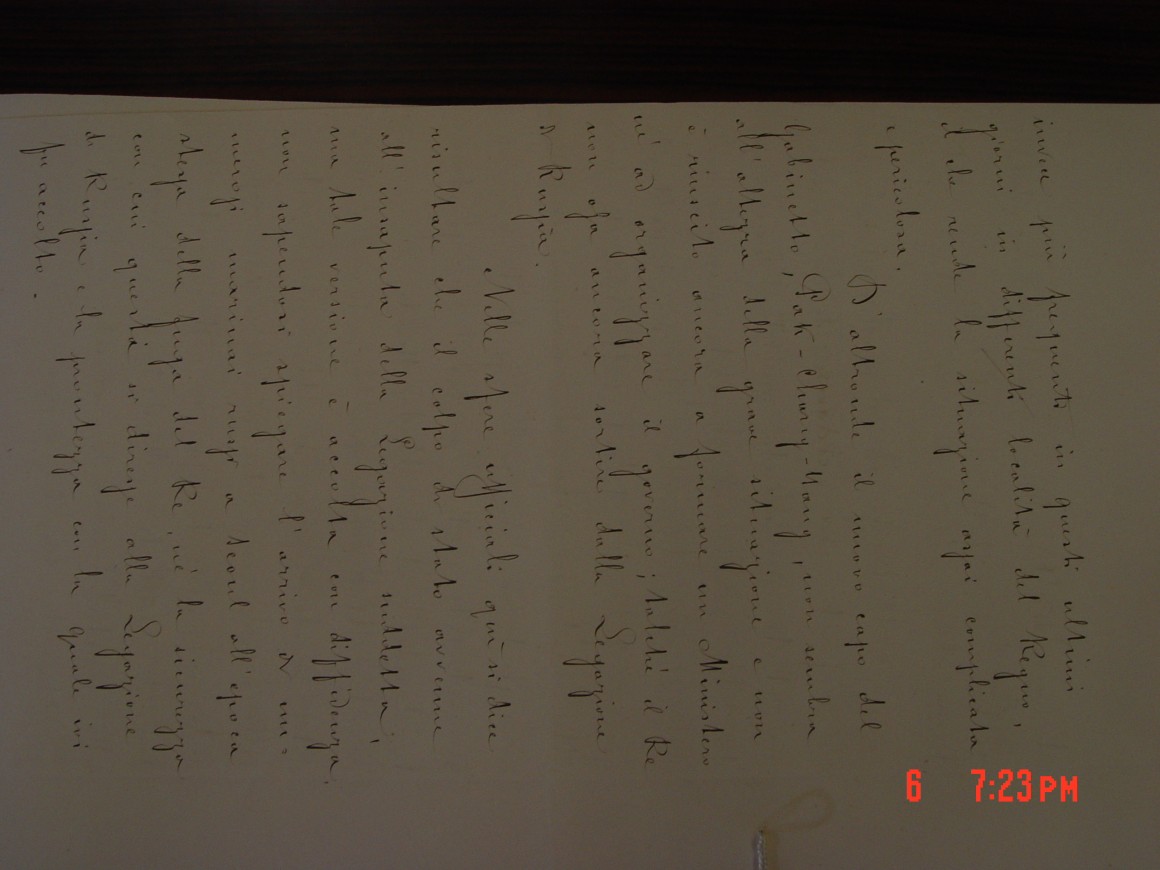 invece più frequenti in questi ultimi
giorni in differenti località del Regno,
il che rende la situazione assai complicata
e pericolosa.
D'altronde il nuovo capo del
Gabinetto, Pak-Chung-Yang, non sembra
all'altezza della grave situazione e non
è riuscito ancora a formare un Ministero
nè ad organizzare il governo; talchè il Re
non osa ancora sortire dalla Legazione
di Russia.
Nelle sfere ufficiali quì si dice
risultare che il colpo di stato avvenne
all'insaputa della Legazione suddetta,
ma tale versione è accolta con diffidenza,
non sapendosi spiegare l'arrivo di nu=
merosi marinai russi a Seoul all'epoca
stessa della fuga del Re, nè la sicurezza
con cui questa si diresse alla Legazione
di Russia e la prontezza con la quale ivi
fu accolto.
6 7:23 PM